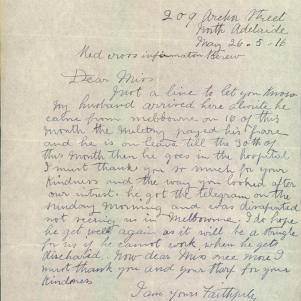 209 Archer Street
North Adelaide
May 26-5-16
Red cross information Bureau
Dear Miss
Just a line to let you know
my husband arrived here he
came from melbourne on 16 of this
month the miletry payed his fare
and he is on leave till the 30th of
this month then he goes in the hospital
I must thank you so much for your
kindness and the way you looked after
our intrest. he got the telegram on the
sunday morning and was disapointed
not seeing us in Melbourne. I do hope
he get well again as it will be a strugle
for us if he cannot work when he gets
discharged. Now dear Miss once more I
must thank you and your for your
kindness
I am yours Faithfuly